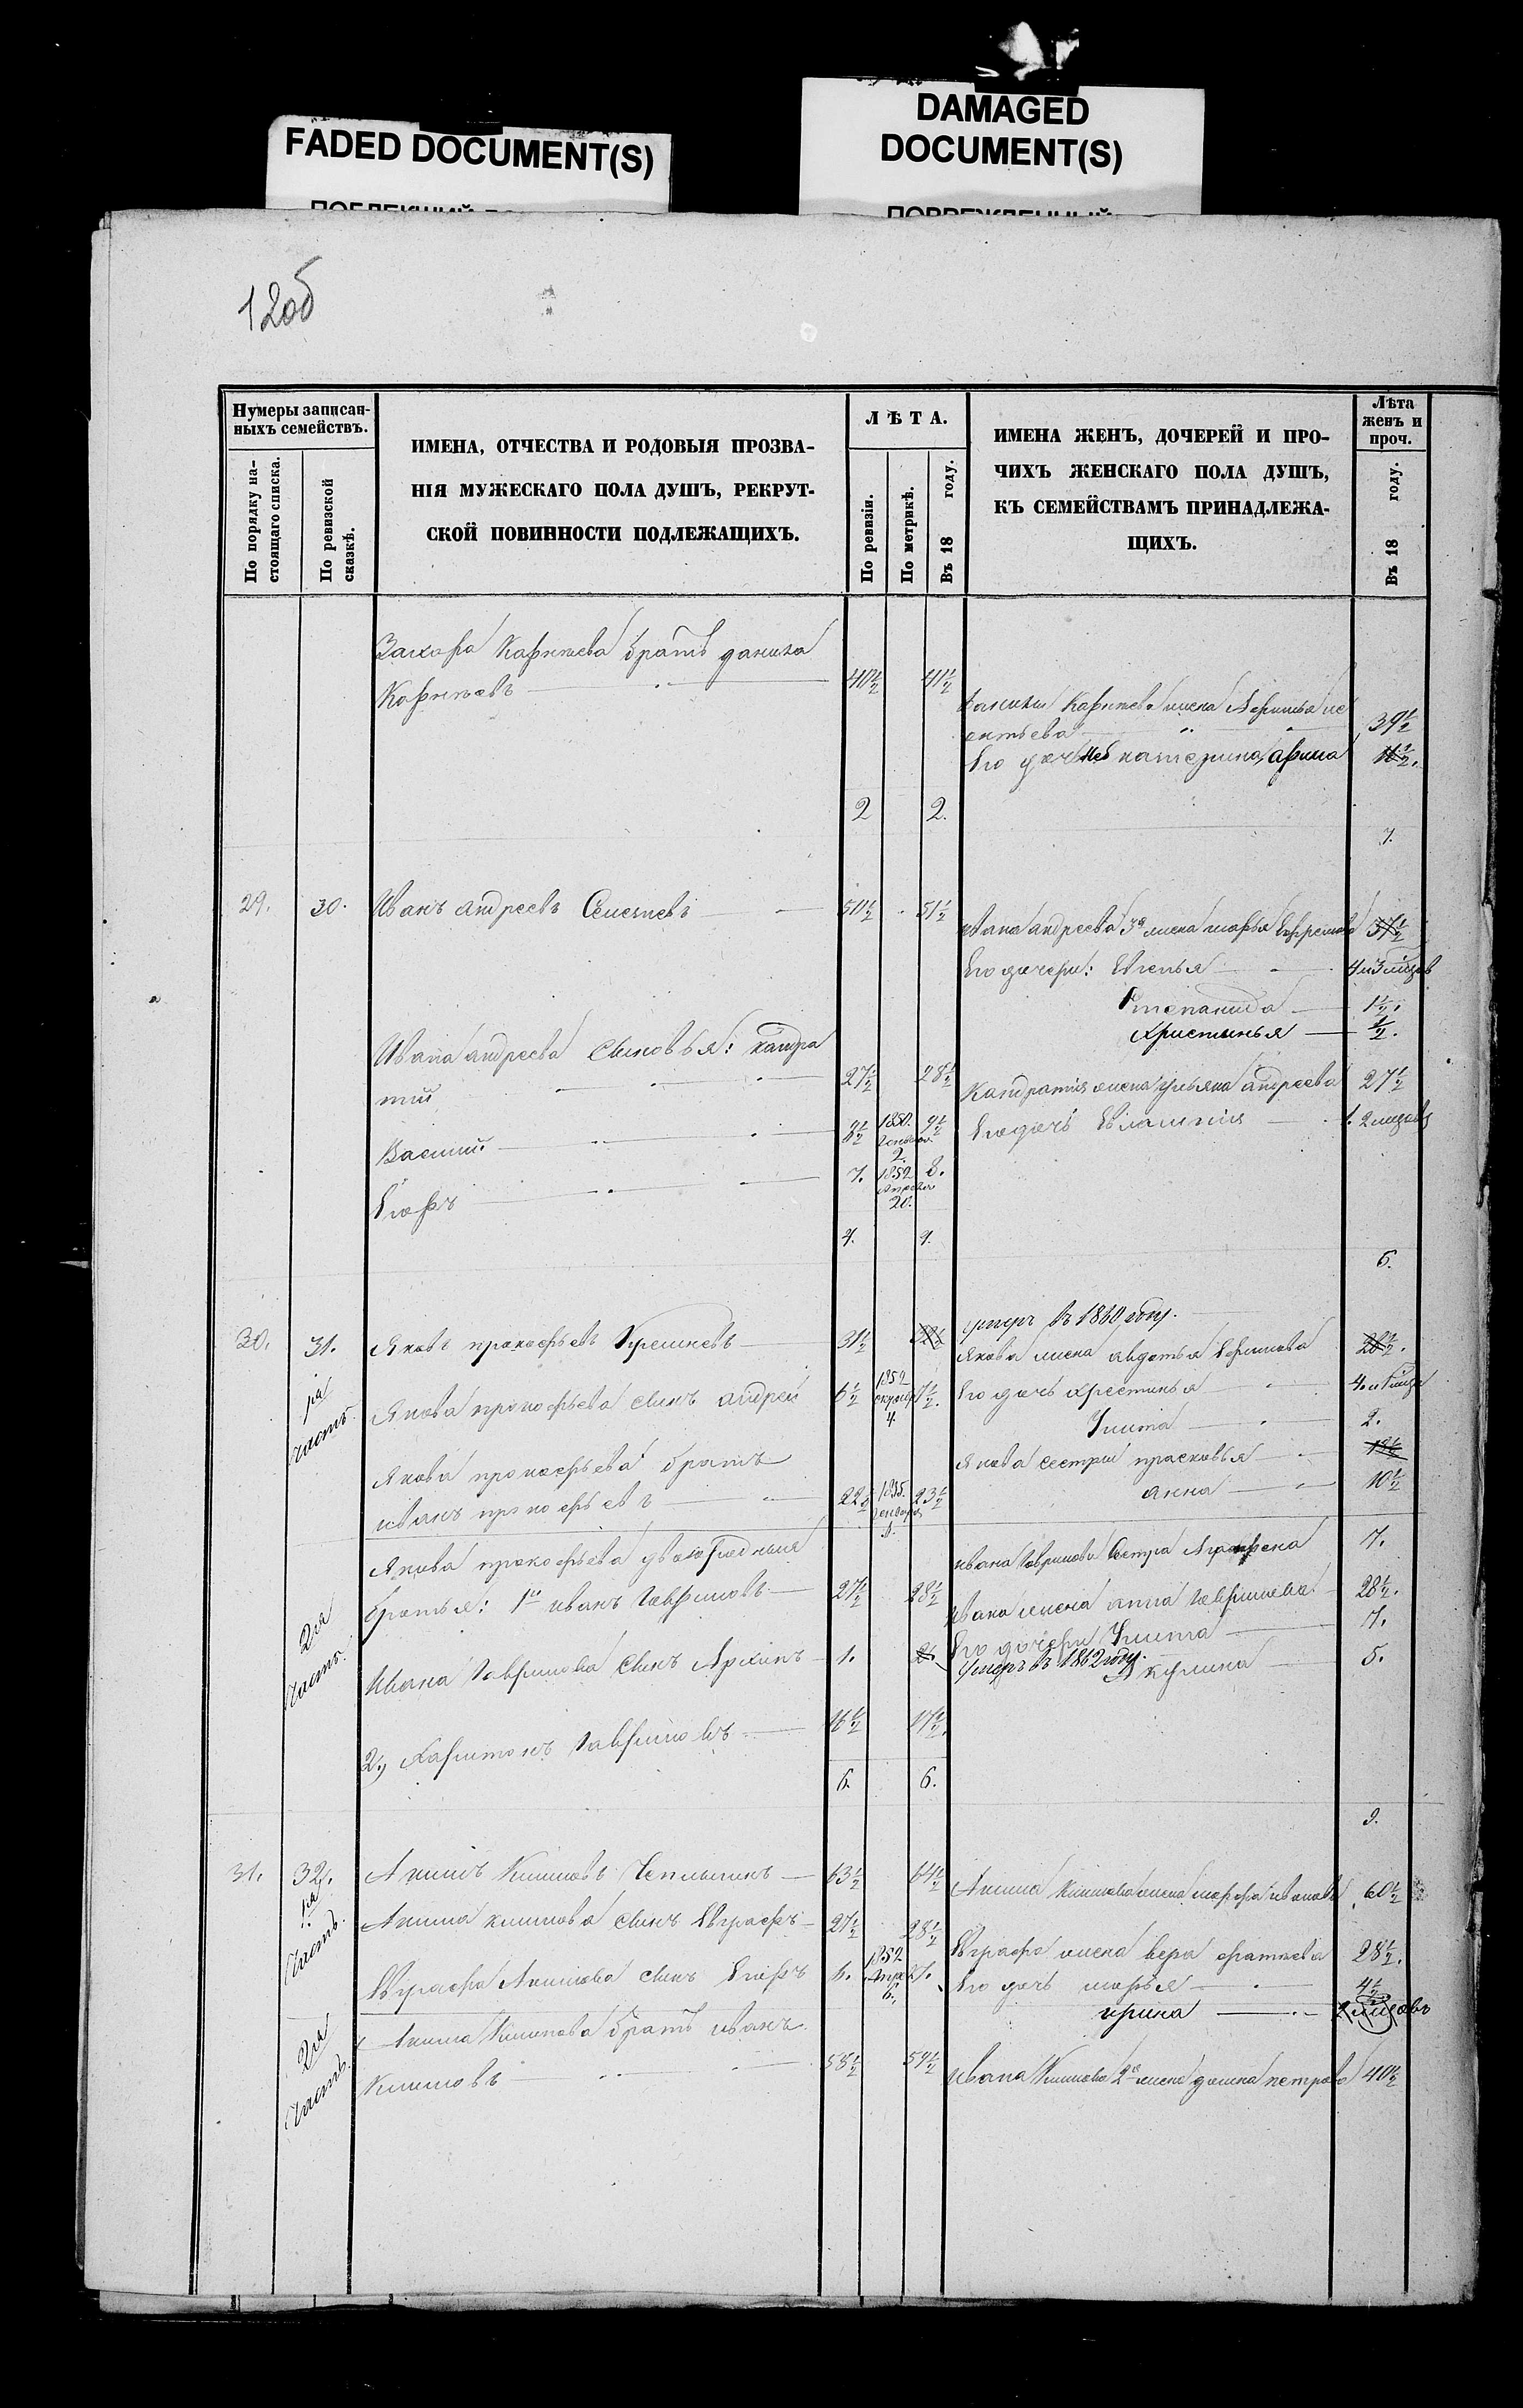 FADED DOCUMENT(S)
DAMAGED
DOCUMENT(S)
12об
Нумеры записан-
ныхъ семействъ.
По порядку на-
стоящаго списка.
По ревизской
сказкѣ.
ИМЕНА, ОТЧЕСТВА И РОДОВЫЯ ПРОЗВА-
НІЯ МУЖЕСКАГО ПОЛА ДУШЪ, РЕКРУТ-
СКОЙ ПОВИННОСТИ ПОДЛЕЖАЩИХЪ.
ЛѢТА.
По ревизіи.
По метрикѣ.
Въ 18 году.
ИМЕНА ЖЕНЪ, ДОЧЕРЕЙ И ПРО-
ЧИХЪ ЖЕНСКАГО ПОЛА ДУШЪ,
КЪ СЕМЕЙСТВАМЪ ПРИНАДЛЕЖА-
ЩИХЪ.
Лѣта
женъ и
проч.
Въ 18 году.
Захара Карнѣева братъ данила
Карнѣевъ 40½ 41½
Данилы Карнѣева жена
39½
Его дочь катерина, арина
2 2.
7.
29. 30. Иванъ андреевъ 50½ 51½
ивана андреева 3я жена марья Ефремова 37½
Его дочери: Евгенья 4 и 3 мѣсяц
Степанида 1½.
Христинья ½.
Ивана андреева сыновья: кандра
тий 27½ 28½
Кандратия жена ульяна андреева 27½
Василий 8½ 1850. 9½
2
Его дочь Евлампия 1. 2 мѣсяцъ
Егоръ 7. 1852 апреля 20. 8.
4. 4.
6.
умеръ въ 1860 году.
30. 31. Яковъ прокофьевъ 31½ 32½
Якова жена авдотья Ефимова 28½.
1я часть
Якова прокофьева сынъ андрей 6½ 1852 4. 7½.
Его дочь христинья
Улита 2.
Якова прокофьева братъ
иванъ прокофьевъ 22½ 1835. генваря 1. 23½
Якова сестры прасковья
анна 10½
2я часть.
Якова прокофьева двоюродныя
братья: 1й иванъ Гавриловъ 27½ 28½
ивана Гаврилова сестра Аграфена 7.
Ивана жена анна Гаврилова 28½.
Его дочери Улита 7.
Умеръ въ 1862 году.
Акулина 5.
Ивана Гаврилова сынъ Архипъ 1. 2.
2.) Харитонъ Гавриловъ 16½ 17½.
6. 6.
9.
31. 32. Акимъ Климовъ 63½ 64½
Акима Климова жена марфа иванова 60½
1я часть.
Акима климова сынъ Евграфъ 27½ 28½
Евграфа жена вера 28½.
Евграфа Акимова сынъ Егоръ 6. 1852 апре 6. 7.
Его дочь марья 4½
ирина
2я часть.
Акима Климова братъ иванъ
Климовъ 58½ 59½
Ивана Климова 2я жена домна петрова 40½